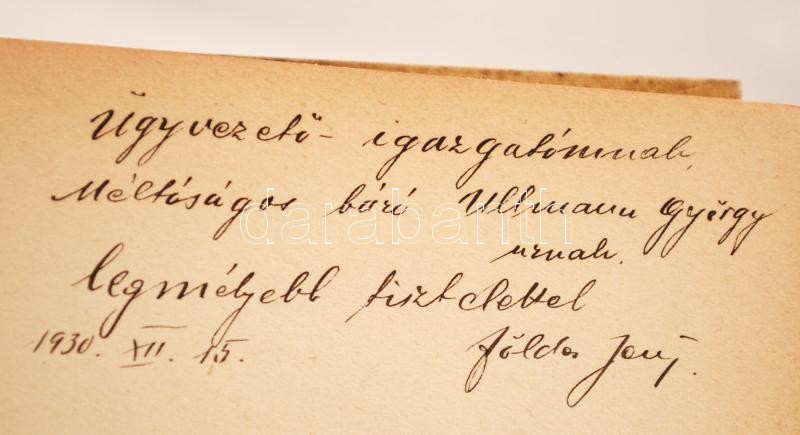 Ügyvezető - igazgatómnak,
Méltóságos báró Ullmann György
urnak.
legmélyebb tisztelettel
1930. XII. 15.
Földes Jenő.
darabanth